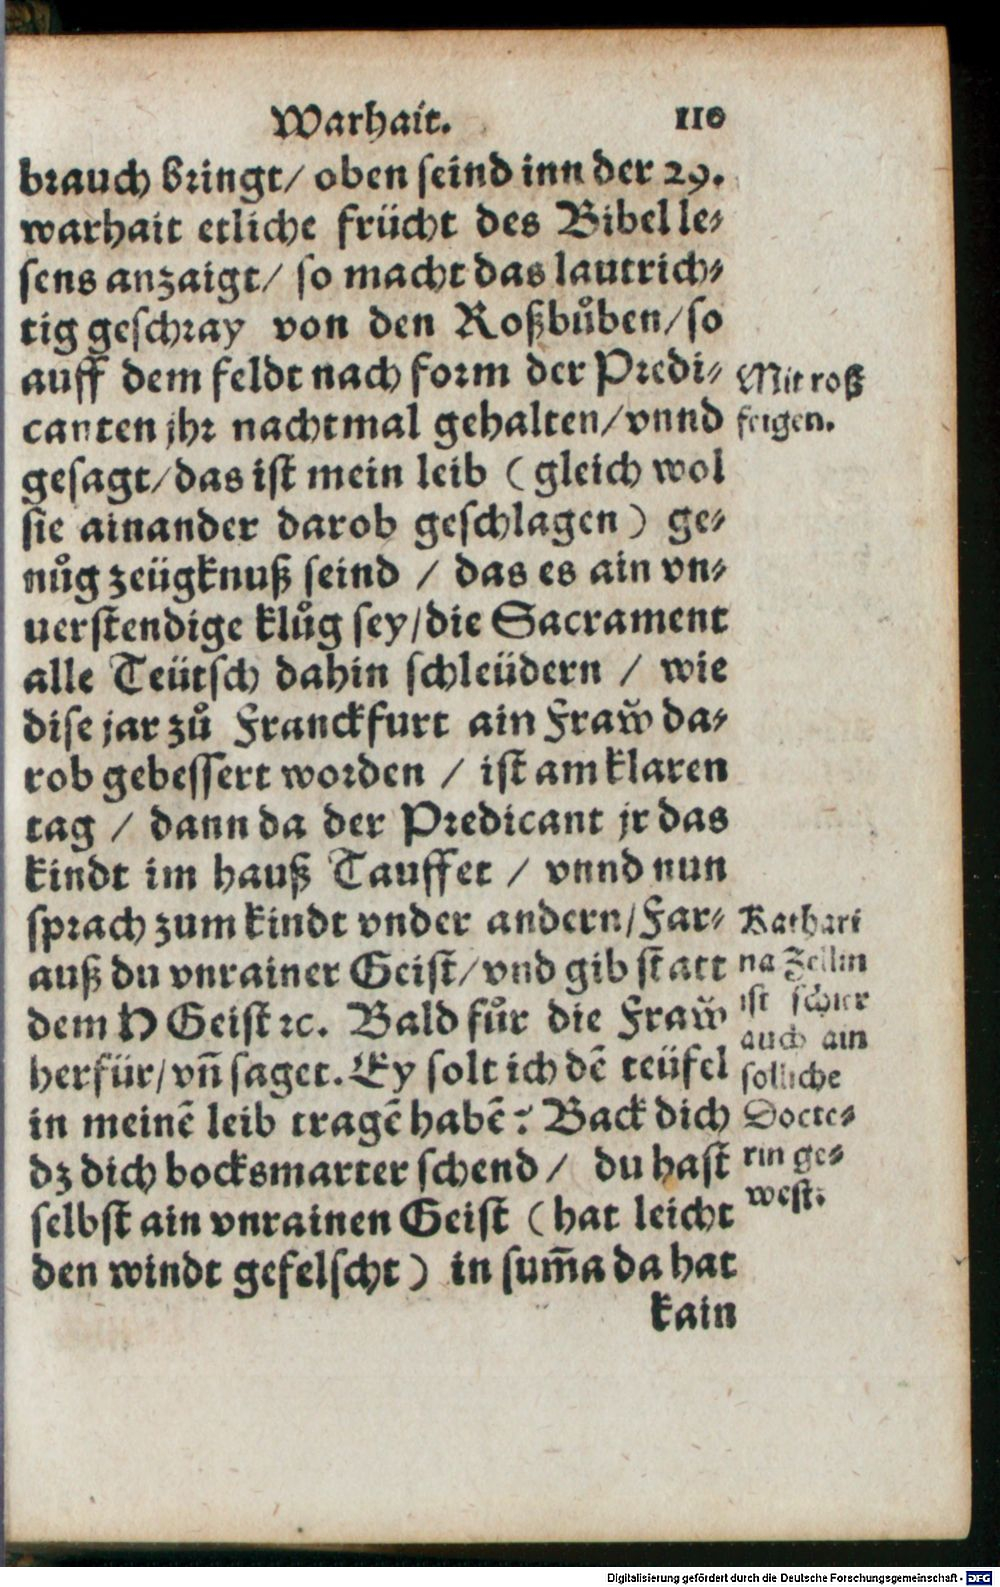 Warhait. 110
brauch bringt/ oben seind inn der 29.
warhait etliche frücht des Bibel le⸗
sens anzaigt/ so macht das lautrich⸗
tig geschray von den Roßbůben/ so
auff dem feldt nach form der Predi⸗
canten jhr nachtmal gehalten/ vnnd
gesagt/ das ist mein leib ( gleich wol
sie ainander darob geschlagen ) ge⸗
nůg zeügknuß seind / das es ain vn⸗
uerstendige klůg sey/ die Sacrament
alle Teütsch dahin schleüdern / wie
dise jar zů Franckfurt ain Fraw̆ da⸗
rob gebessert worden / ist am klaren
tag / dann da der Predicant jr das
kindt im hauß Tauffet / vnnd nun
sprach zum kindt vnder andern/ Far⸗
auß du vnrainer Geist/ vnd gib statt
dem H Geist ꝛc. Bald fůr die Fraw̆
herfür/ vñ saget. Ey solt ich dẽ teüfel
in meinẽ leib tragẽ habẽ? Back dich
dz dich bocksmarter schend / du hast
selbst ain vnrainen Geist ( hat leicht
den windt gefelscht ) in sum̃a da hat
kain
Mit roß
feigen.
Kathari
na Zellin
ist schier
auch ain
solliche
Docto⸗
rin ge⸗
west.
Digitalisierung gefördert durch die Deutsche Forschungsgemeinschaft - DFG